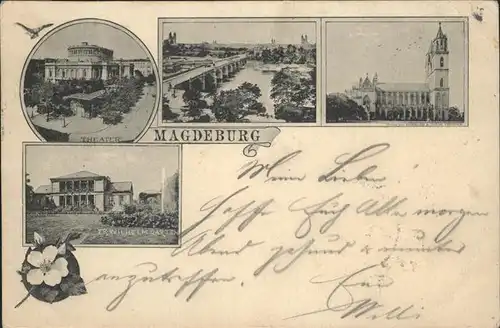 THEATER
MAGDEBURG
FR. WILHELM GARTEN
Meine Lieben
Hoffe Euch Alle morgen
Abend gesund & munter
anzutreffen.
Euer
Willi